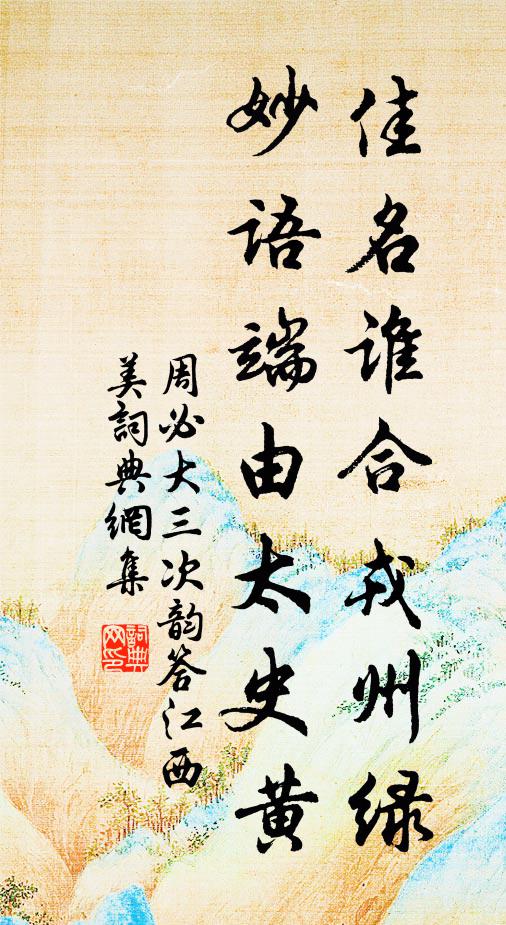 佳名谁合戎州绿
妙语端由太史黄
周必大三次韵答江西
美詞典網集
詞典
网印